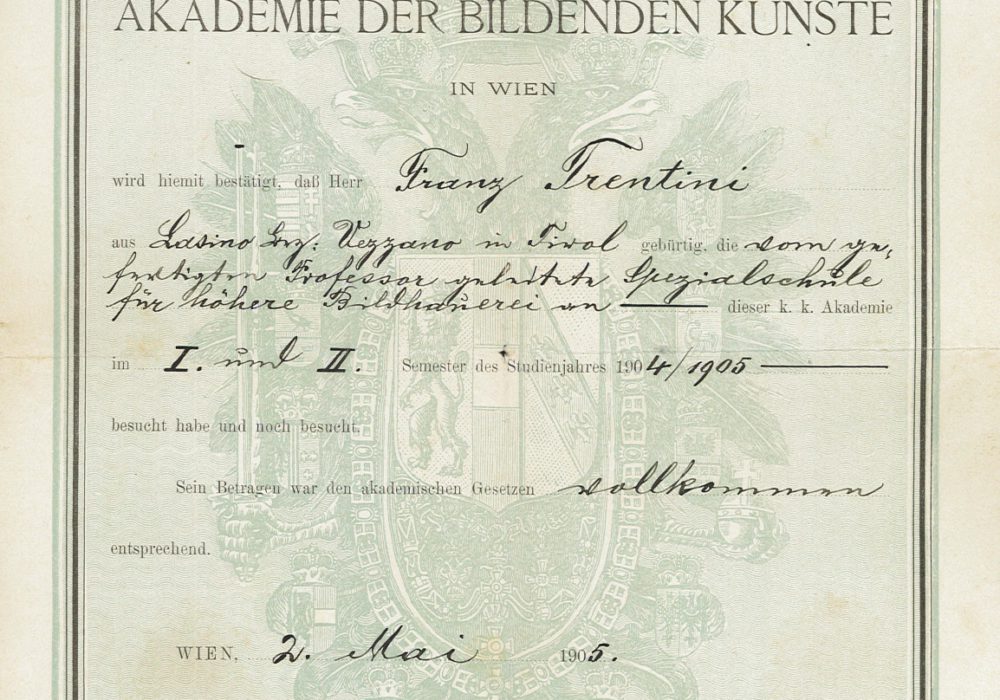 AKADEMIE DER BILDENDEN KÜNSTE
IN WIEN
wird hiemit bestätigt, daß Herr Franz Trentini
aus Lasino Bez: Vezzano in Tirol gebürtig, die vom ge-
fertigten Professor geleitete Spezialschule
für höhere Bildhauerei an dieser k. k. Akademie
im I. und II. Semester des Studienjahres 1904/1905
besucht habe und noch besucht.
Sein Betragen war den akademischen Gesetzen vollkommen
entsprechend.
WIEN, 2. Mai 1905.